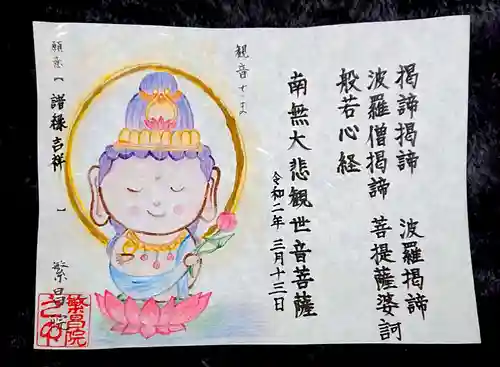 揭諦揭諦 波羅揭諦
波羅僧揭諦 菩提薩婆訶
般若心経
南無大悲観世音菩薩
令和二年 三月十三日
観音
願意【諸縁吉祥】
繁昌院
繁昌院